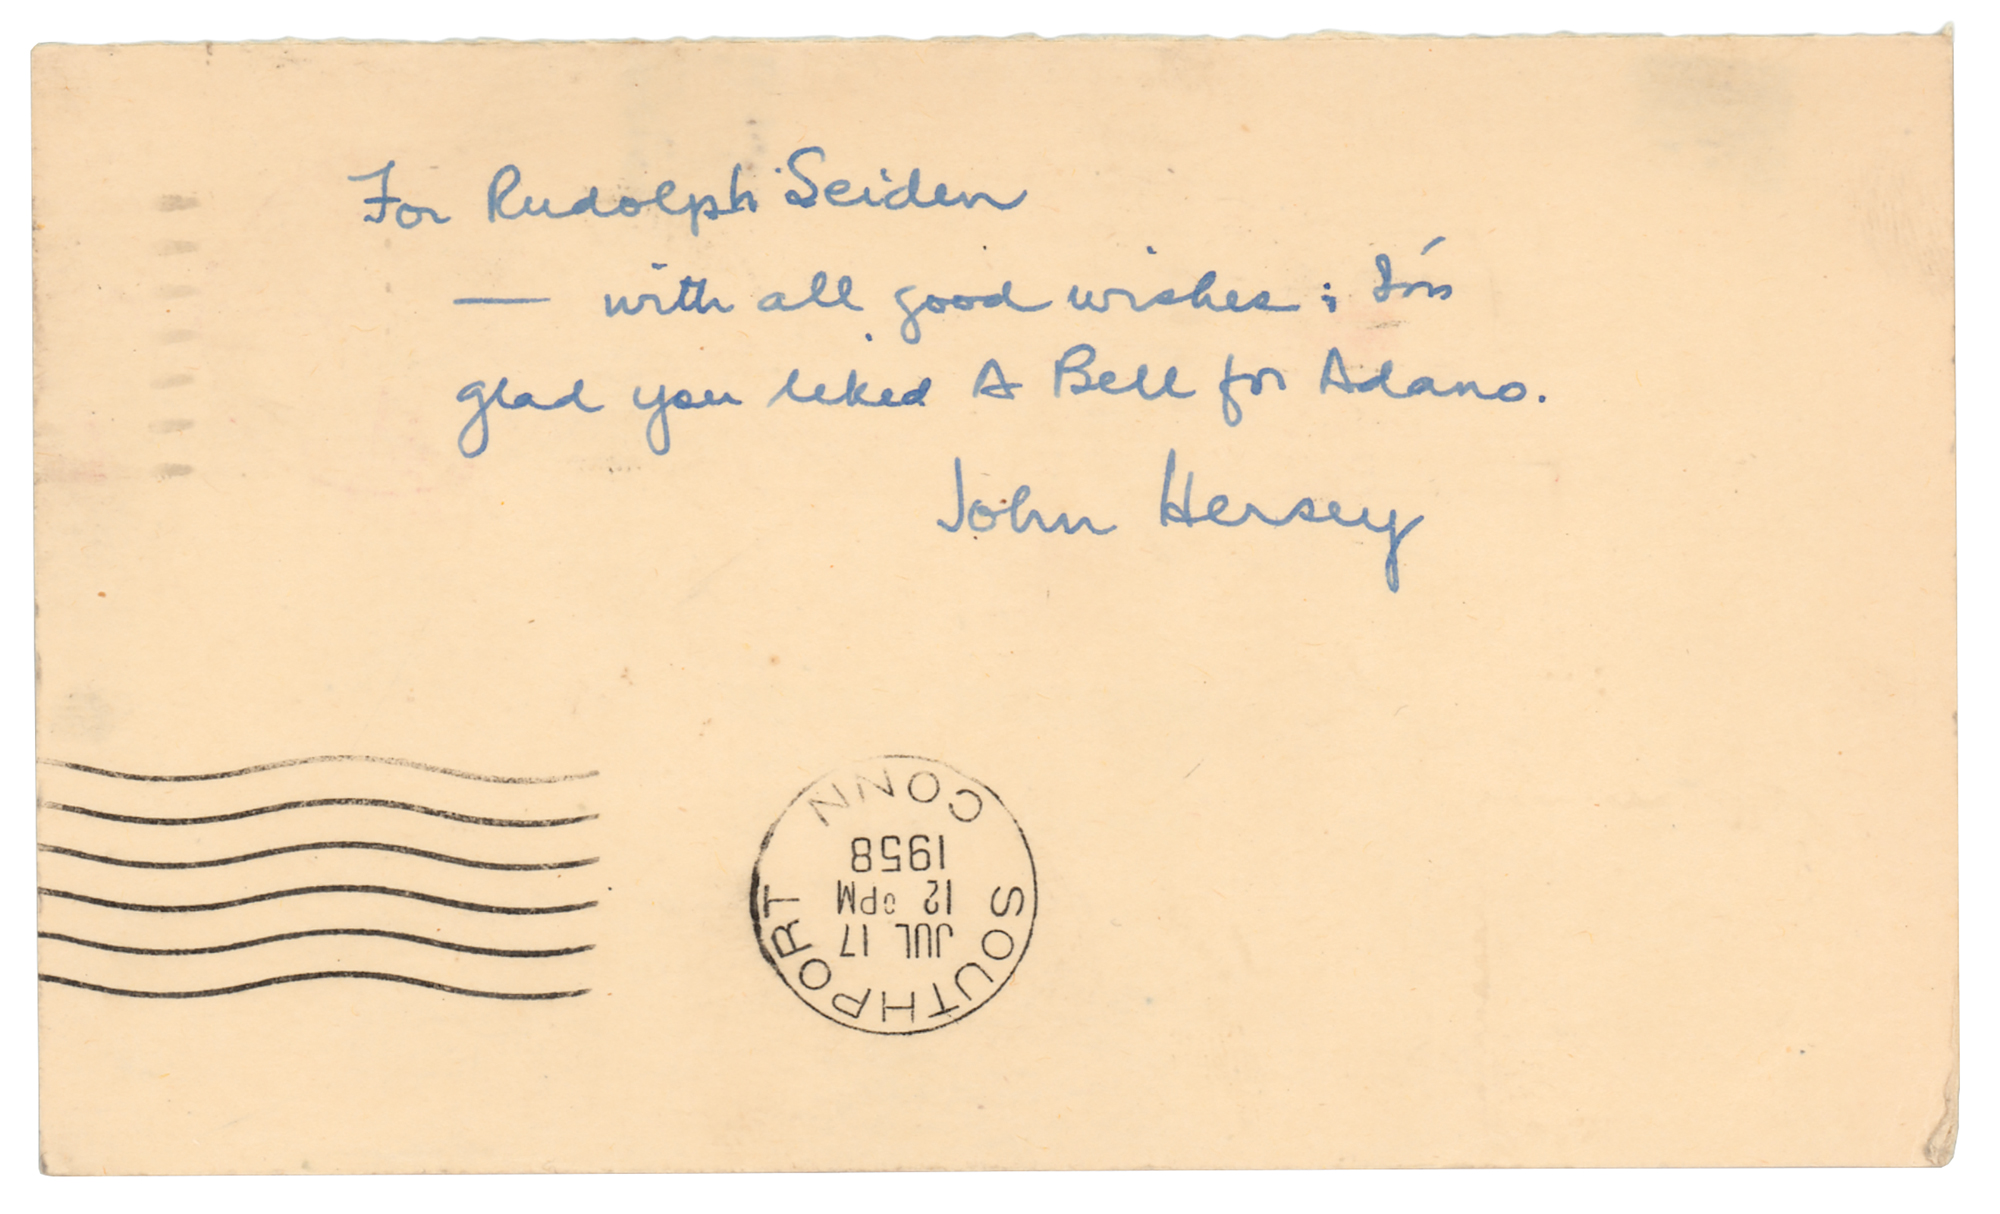 For Rudolph Seiden
— with all good wishes; I'm
glad you liked A Bell for Adano.
John Hersey
SOUTHPORT
JUL 17
12 0PM
1958
CONN